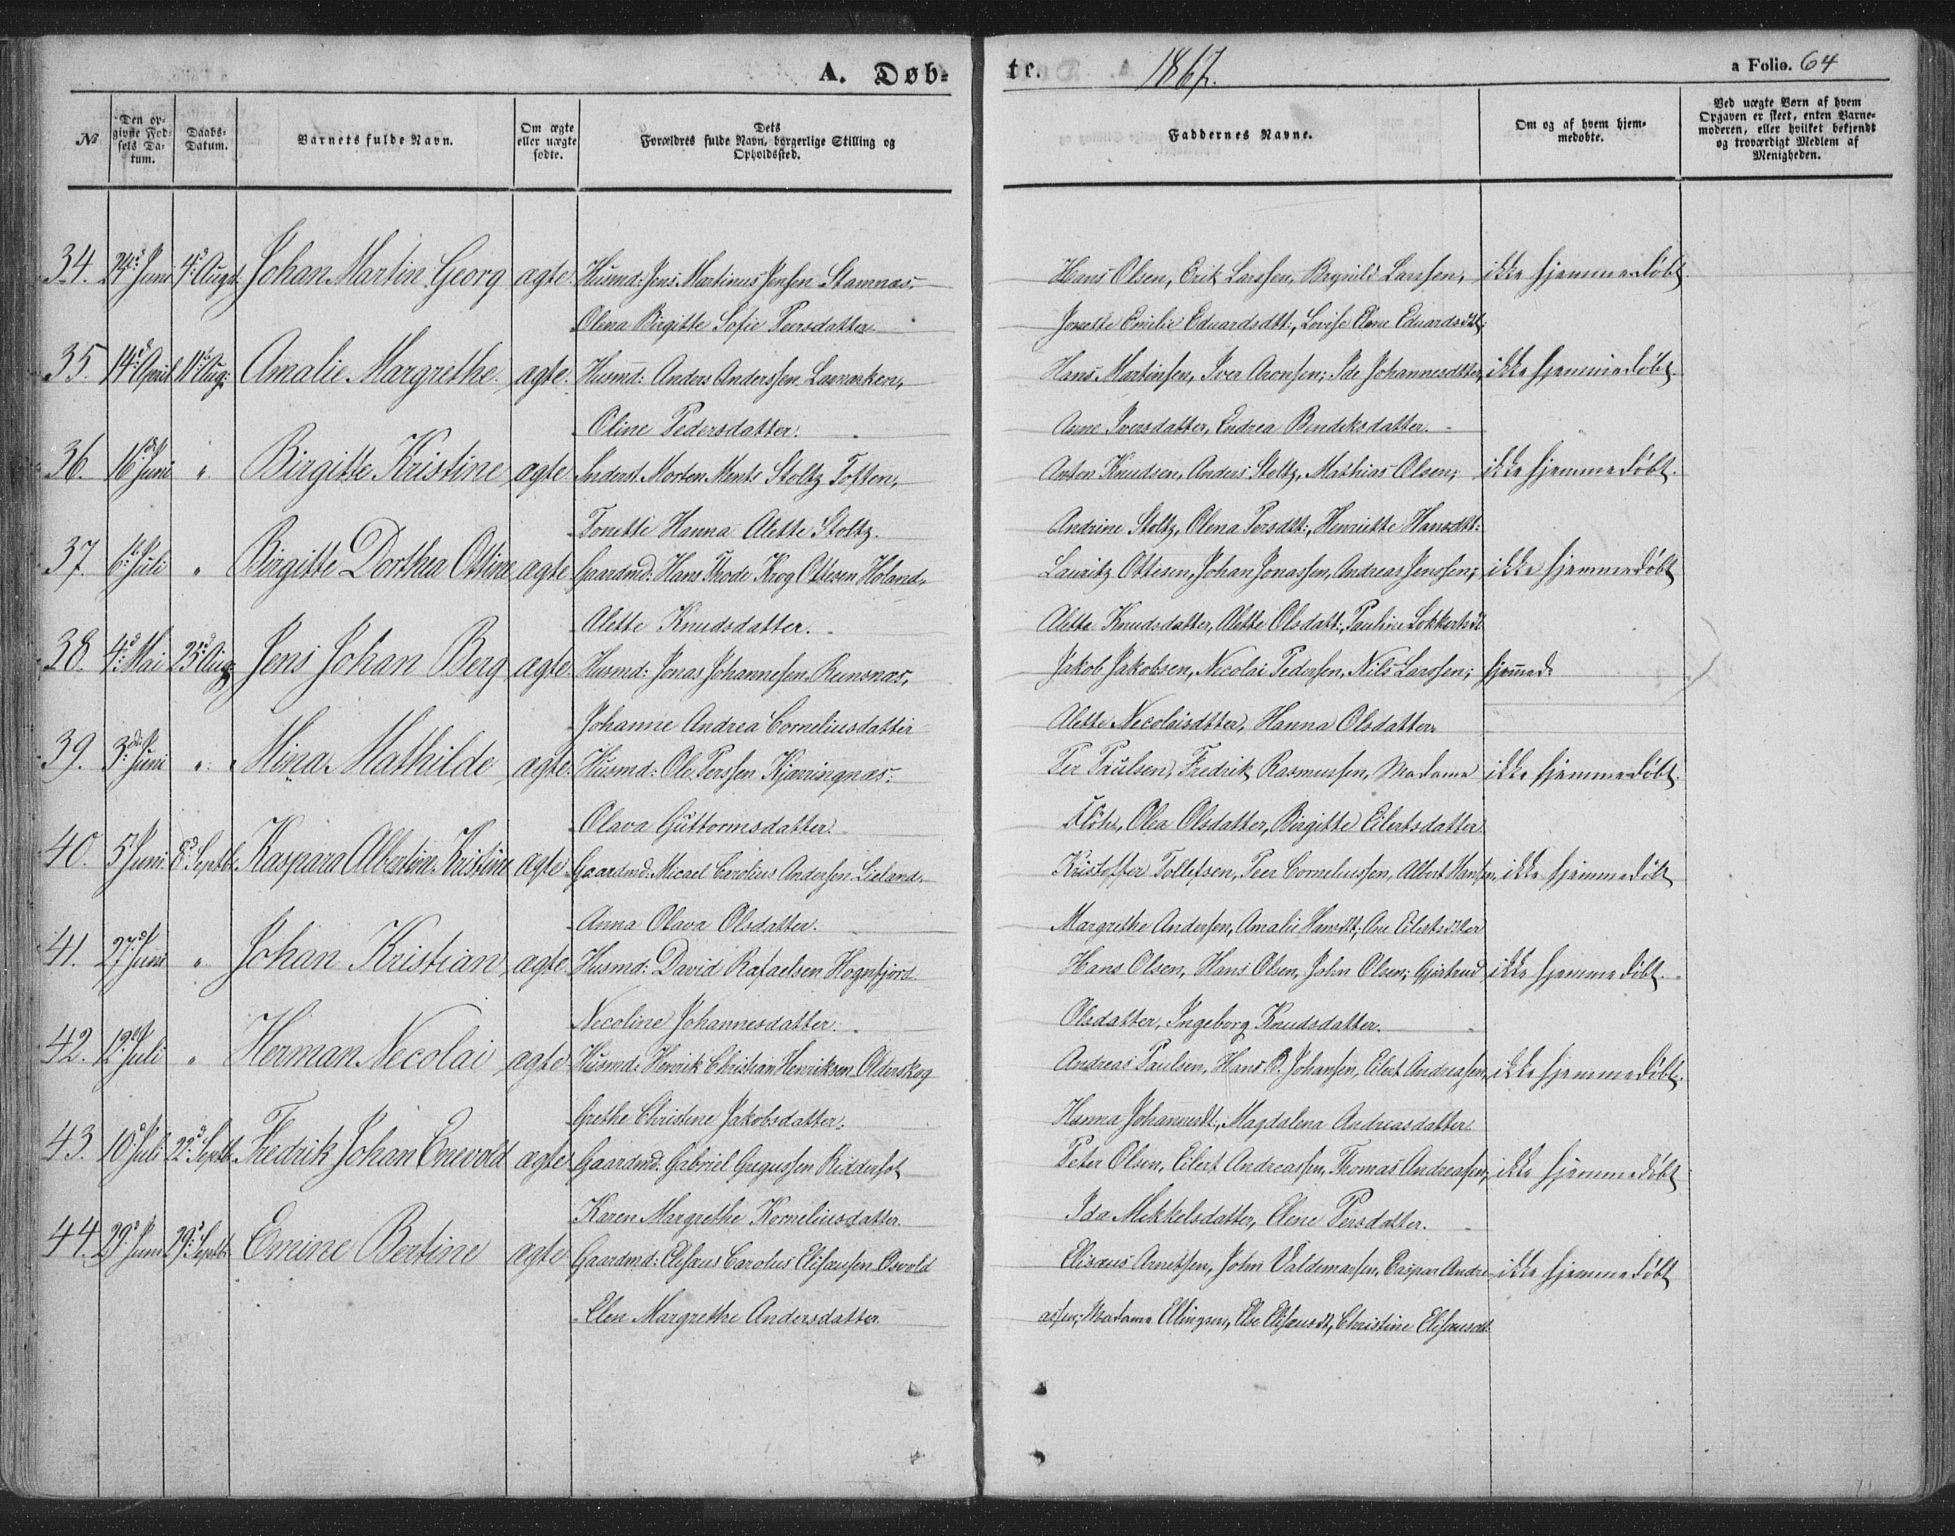 A. Døb-
te. 1867. a Folio. 64
№ | Den opgivne Fødsels Datum. | Daabs-Datum. | Barnets fulde Navn. | Om ægte eller uægte fødte. | Dets Forældres fulde Navn, borgerlige Stilling og Opholdssted. | Faddernes Navne. | Om og af hvem hjemmedøbte. | Ved uægte Børn af hvem Opgaven er skeet, enten Barnemoderen, eller hvilket bekjendt og troværdigt Medlem af Menigheden.
34. 24de Juni 4de Augst. Johan Martin Georg ægte. Husmd: Jens Martinus Jensen Stamnæs. Hans Olsen, Erik Larssen, Brynild Larssen, ikke hjemmedøbt.
Olena Birgitte Sofie Peersdatter Jonette Emilie Eduardsdtt:, Lovise Elene Eduardsdtt:
35. 14de April 11te Aug: Amalie Margrethe. ægte. Husmd: Anders Anderssen Lavmarken, Hans Martinsen, Iver Aronsen; Ide Johannesdtter, ikke hjemmedøbt.
Oline Pedersdatter. Anne Iversdatter, Endrea Bendiksdatter.
36. 16de Juni " Birgitte Kristine ægte. Inderst. Morten Ments Stoltz Toften, Anton Knudsen, Anders Stoltz, Mathias Olsen; ikke hjemmedøbt.
Tonette Hanna Alette Stoltz. Andrine Stoltz, Olena Persdtt:, Henriette Hansdtt:
37. 6te Juli " Birgitte Dorthea Ottine ægte Gaardmd: Hans Thode Krog Ottesen Høland, Lauritz Ottesen, Johan Jonassen, Andreas Jenssen; ikke hjemmedøbt
Alette Knudsdatter. Alette Knudsdatter, Alette Olsdatt:, Pauline
38. 4de Mai 25de Aug Jens Johan Berg ægte. Husmd: Jonas Johannesen Reinsnæs, Jakob Jakobsen, Necolai Pedersen, Nils Larssen; hjemmed:
Johanne Andrea Corneliusdatter Alette Necolaisdtter, Hanna Olsdatter
39. 3die Juni " Mina Mathilde ægte. Husmd: Ole Perssen Kjærringnæs. Per Paulsen, Fredrik Rasmussen, Madame ikke hjemmedøbt.
Olava Guttormsdatter. Olea Olsdatter, Birgitte Eilertsdatter
40. 5 Juni 8de Septb. Kaspara Albertine Kristine ægte Gaardmd: Micael Carolius Andersen Lieland. Kristoffer Tollefsen, Peer Corneliussen, Albert Hansen, ikke hjemmedøbt
Anna Olava Olsdatter. Margrethe Andersen, Amalie Hansdt; Ane Eilertsdtter
41. 27de Juni " Johan Kristian ægte. Husmd: David Rafaelsen Hognfjord. Hans Olsen, Hans Olsen, John Olsen; Gjertrud ikke hjemmedøbt.
Necoline Johannesdatter. Olsdatter, Ingeborg Knudsdatter.
42. 12te Juli " Herman Necolai ægte Husmd: Henrik Christian Henriksen Olderskog Andreas Paulsen, Hans B. Johansen, Eilert Andreasen, ikke hjemmedøbt.
Grethe Christine Jakobsdatter. Hanna Johannesdt:, Magdalena Andreasdatter
43. 10de Juli 22de Septb. Fredrik Johan Enevold ægte Gaardmd: Gabriel Gregussen Kidderfot Peter Olsen, Eilert Andreassen, Thomas Andreassen, ikke hjemmedøbt
Karen Margrethe Korneliusdatter. Ida Mikkelsdatter, Elene Persdatter.
44. 29de Juni 29de Septb. Emine Bertine ægte Gaardmd: Elisæus Carolus Elisæusen Osvold Elisæus Arnetsen, John Valdemarsen, Caspar Andre- ikke hjemmedøbt
Elen Margrethe Andersdatter. assen; Madame Ellingsen, Else Elisæusdt, Christine Elisæusdt.